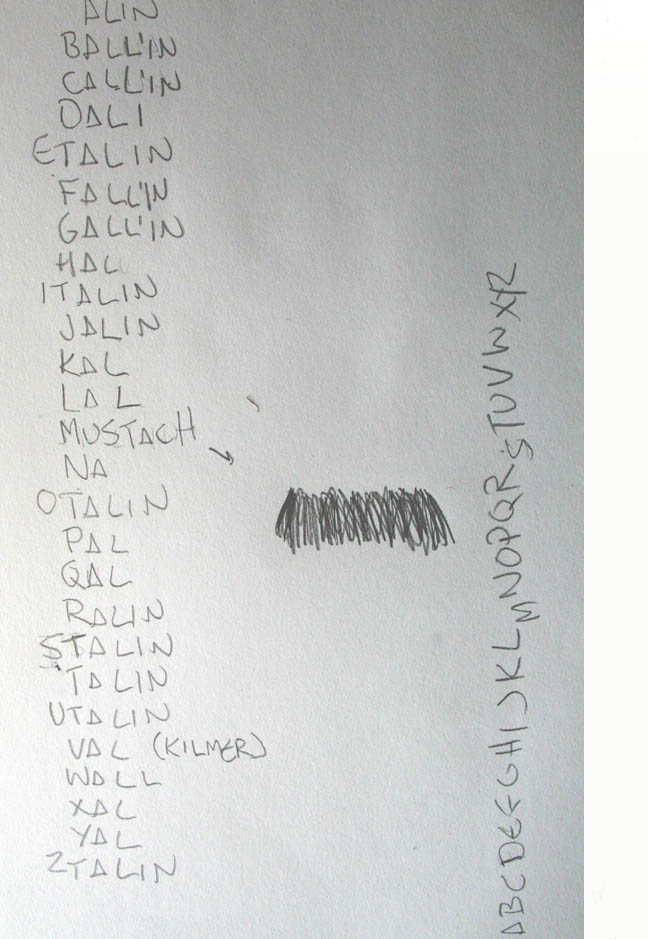 ALIN
BALL'IN
CALL'IN
DALI
ETALIN
FALL'IN
GALL'IN
HAL
ITALIN
JALIN
KAL
LAL
MUSTACH
NA
OTALIN
PAL
QAL
RALIN
STALIN
TALIN
UTALIN
VAL (KILMER)
WALL
XAL
YAL
ZTALIN
ABCDEFGHIJKLMNOPQRSTUVWXYZ